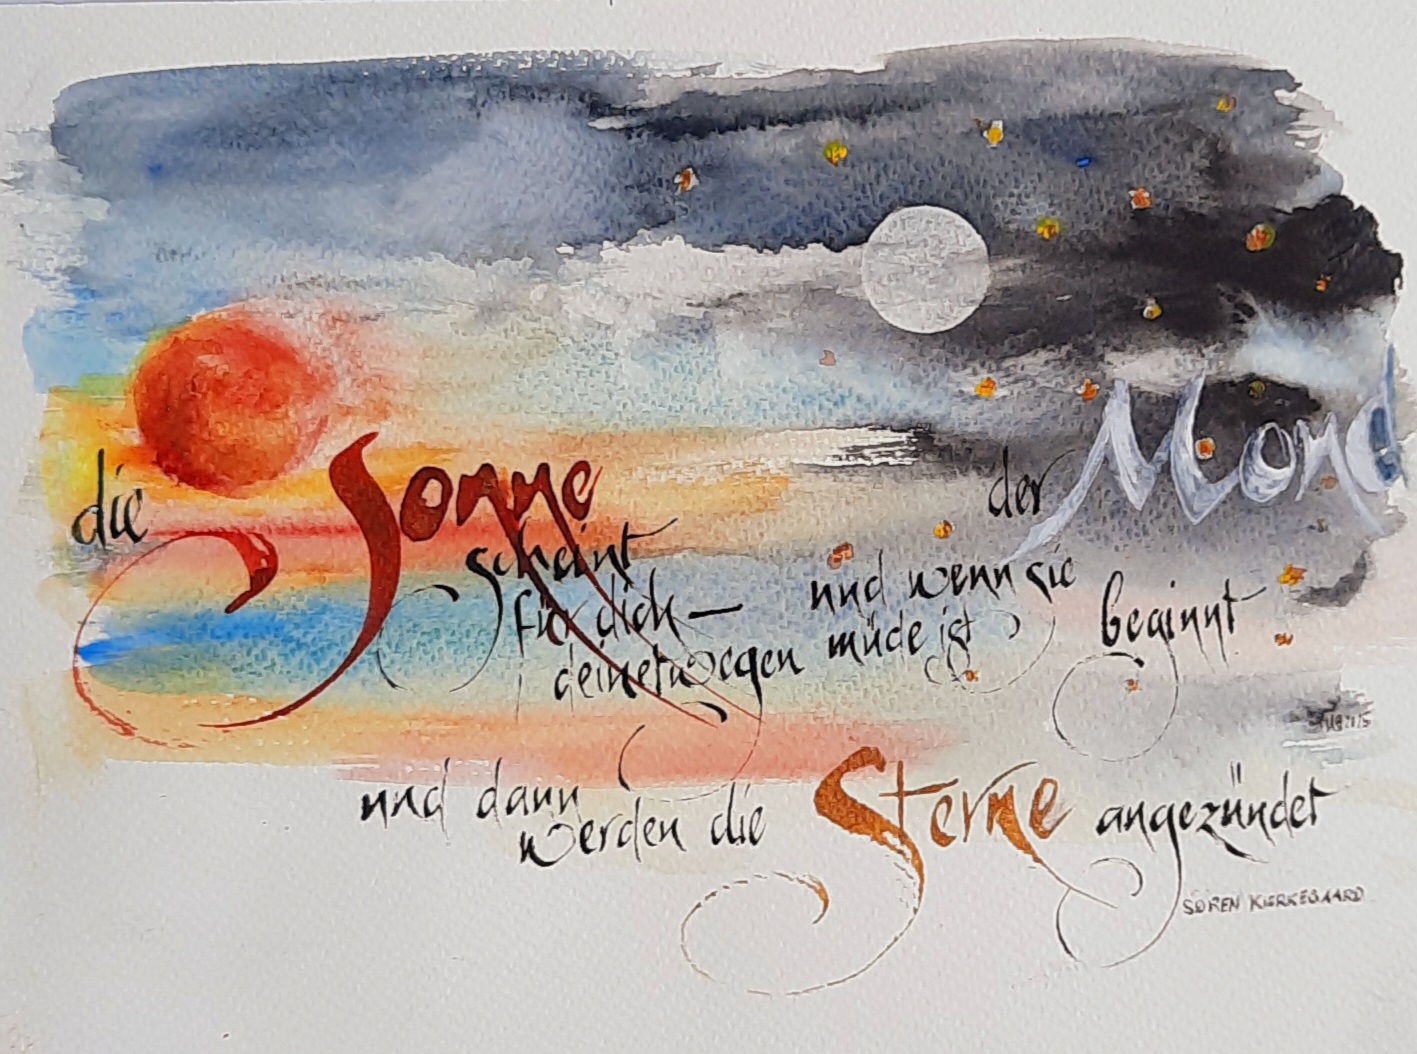 die Sonne
scheint
für dich —
deinetwegen
und wenn sie
müde ist
der Mond
beginnt
und dann
werden die Sterne angezündet
SØREN KIERKEGAARD